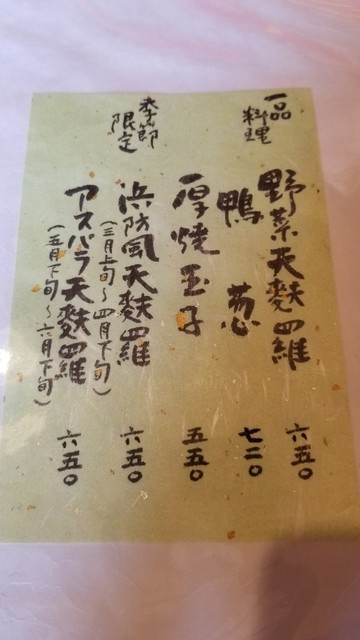 一品料理
野菜天麩羅 六五〇
鴨葱 七二〇
厚焼玉子 五五〇
季節限定
浜防風天麩羅 六五〇
(三月上旬〜四月下旬)
アスパラ天麩羅 六五〇
(五月下旬〜六月下旬)